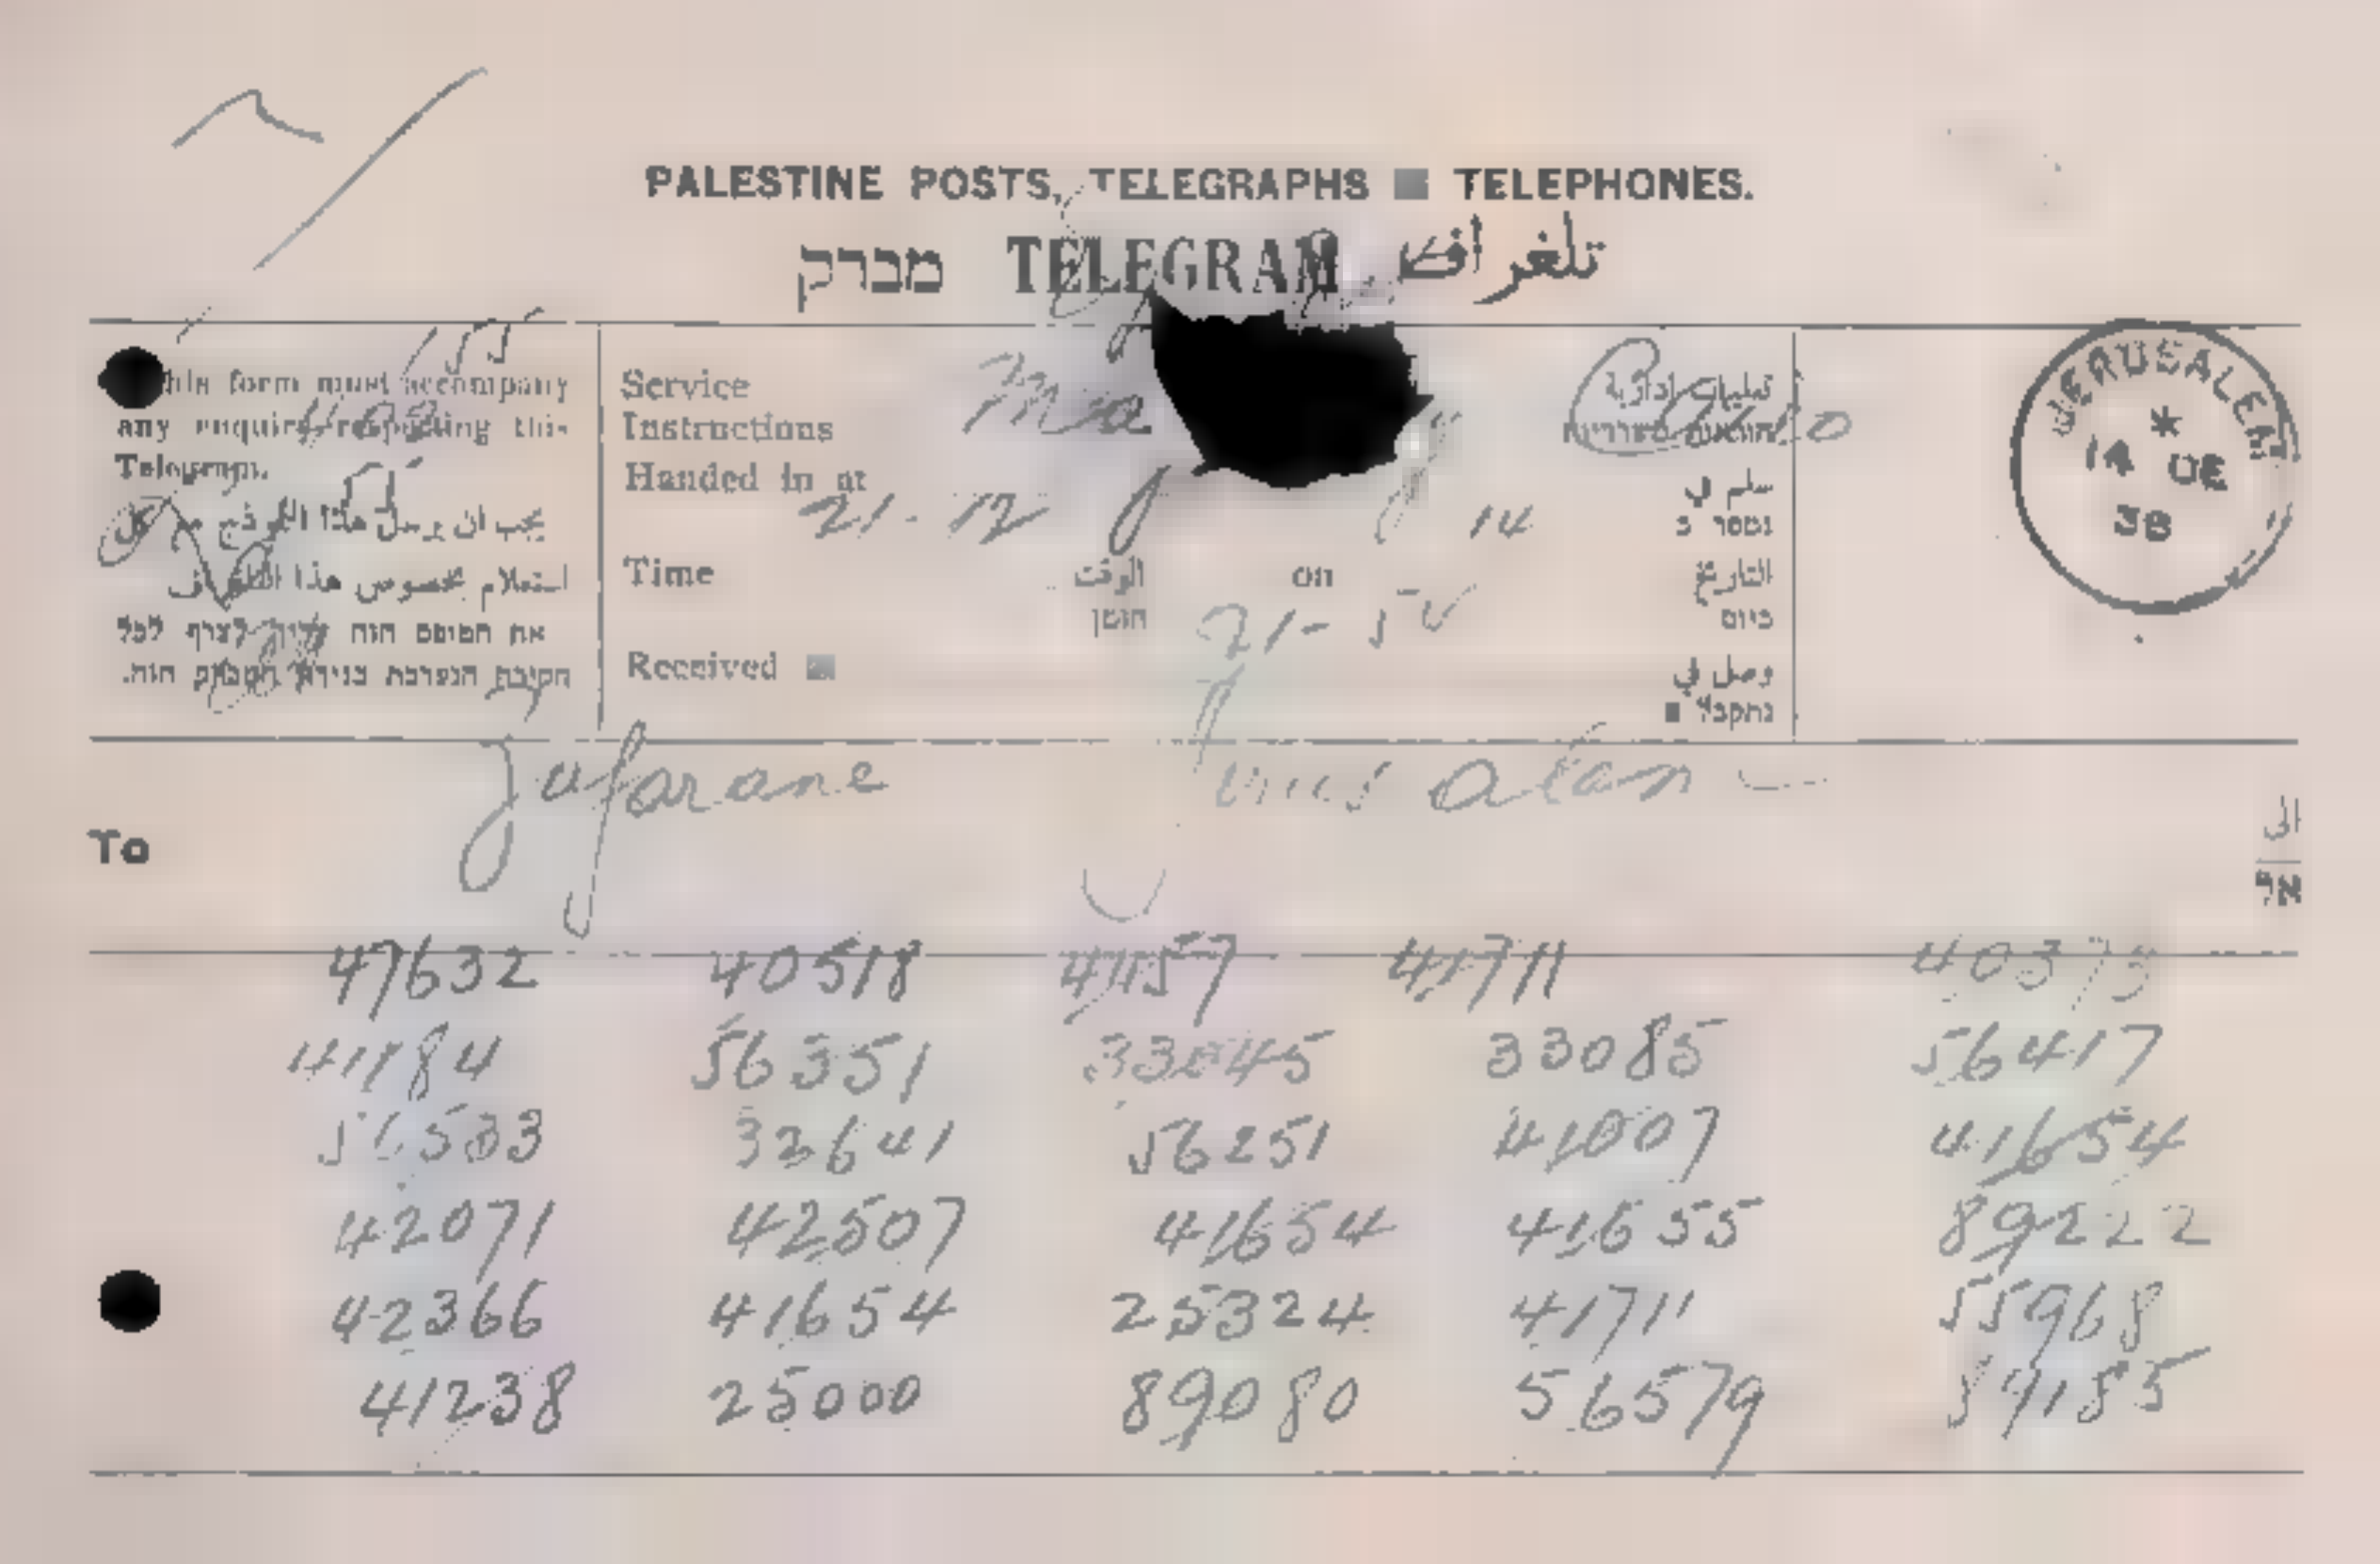 PALESTINE POSTS, TELEGRAPHS TELEPHONES.
מברק TELEGRAM تلغراف
This form must accompany
any enquiry respecting this
Telegram.
يجب ان يرسل هذا النموذج مع كل
استعلام بخصوص هذا التلغراف
את הטופס הזה צריך לצרף לכל
חקירה הנערכת בנידון המברק הזה.
Service
Instructions
Cairo
Handed in at
سلم في
נמסר ב
21-12
14
Time
الوقت
הזמן
on
التاريخ
ביום
Received
21-50
وصل في
נתקבל
JERUSALEM
14 DE
38
To
الى
אל
47632 40518 41157 41711 40375
41184 56351 33045 33085 56417
56533 32641 56251 41007 41654
42071 42507 41654 41655 89222
42366 41654 25324 41711 55968
41238 25000 89080 56579 89185